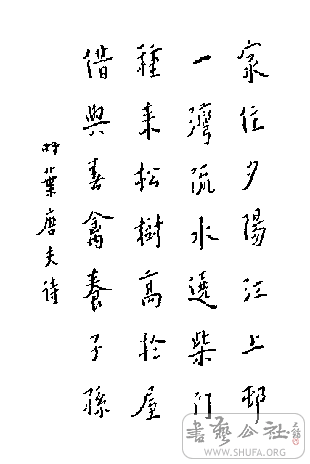 家住夕陽江上邨
一灣流水遶柴門
種来松樹高於屋
借與春禽養子孫
葉唐夫詩
書藝公社
WWW.SHUFA.ORG